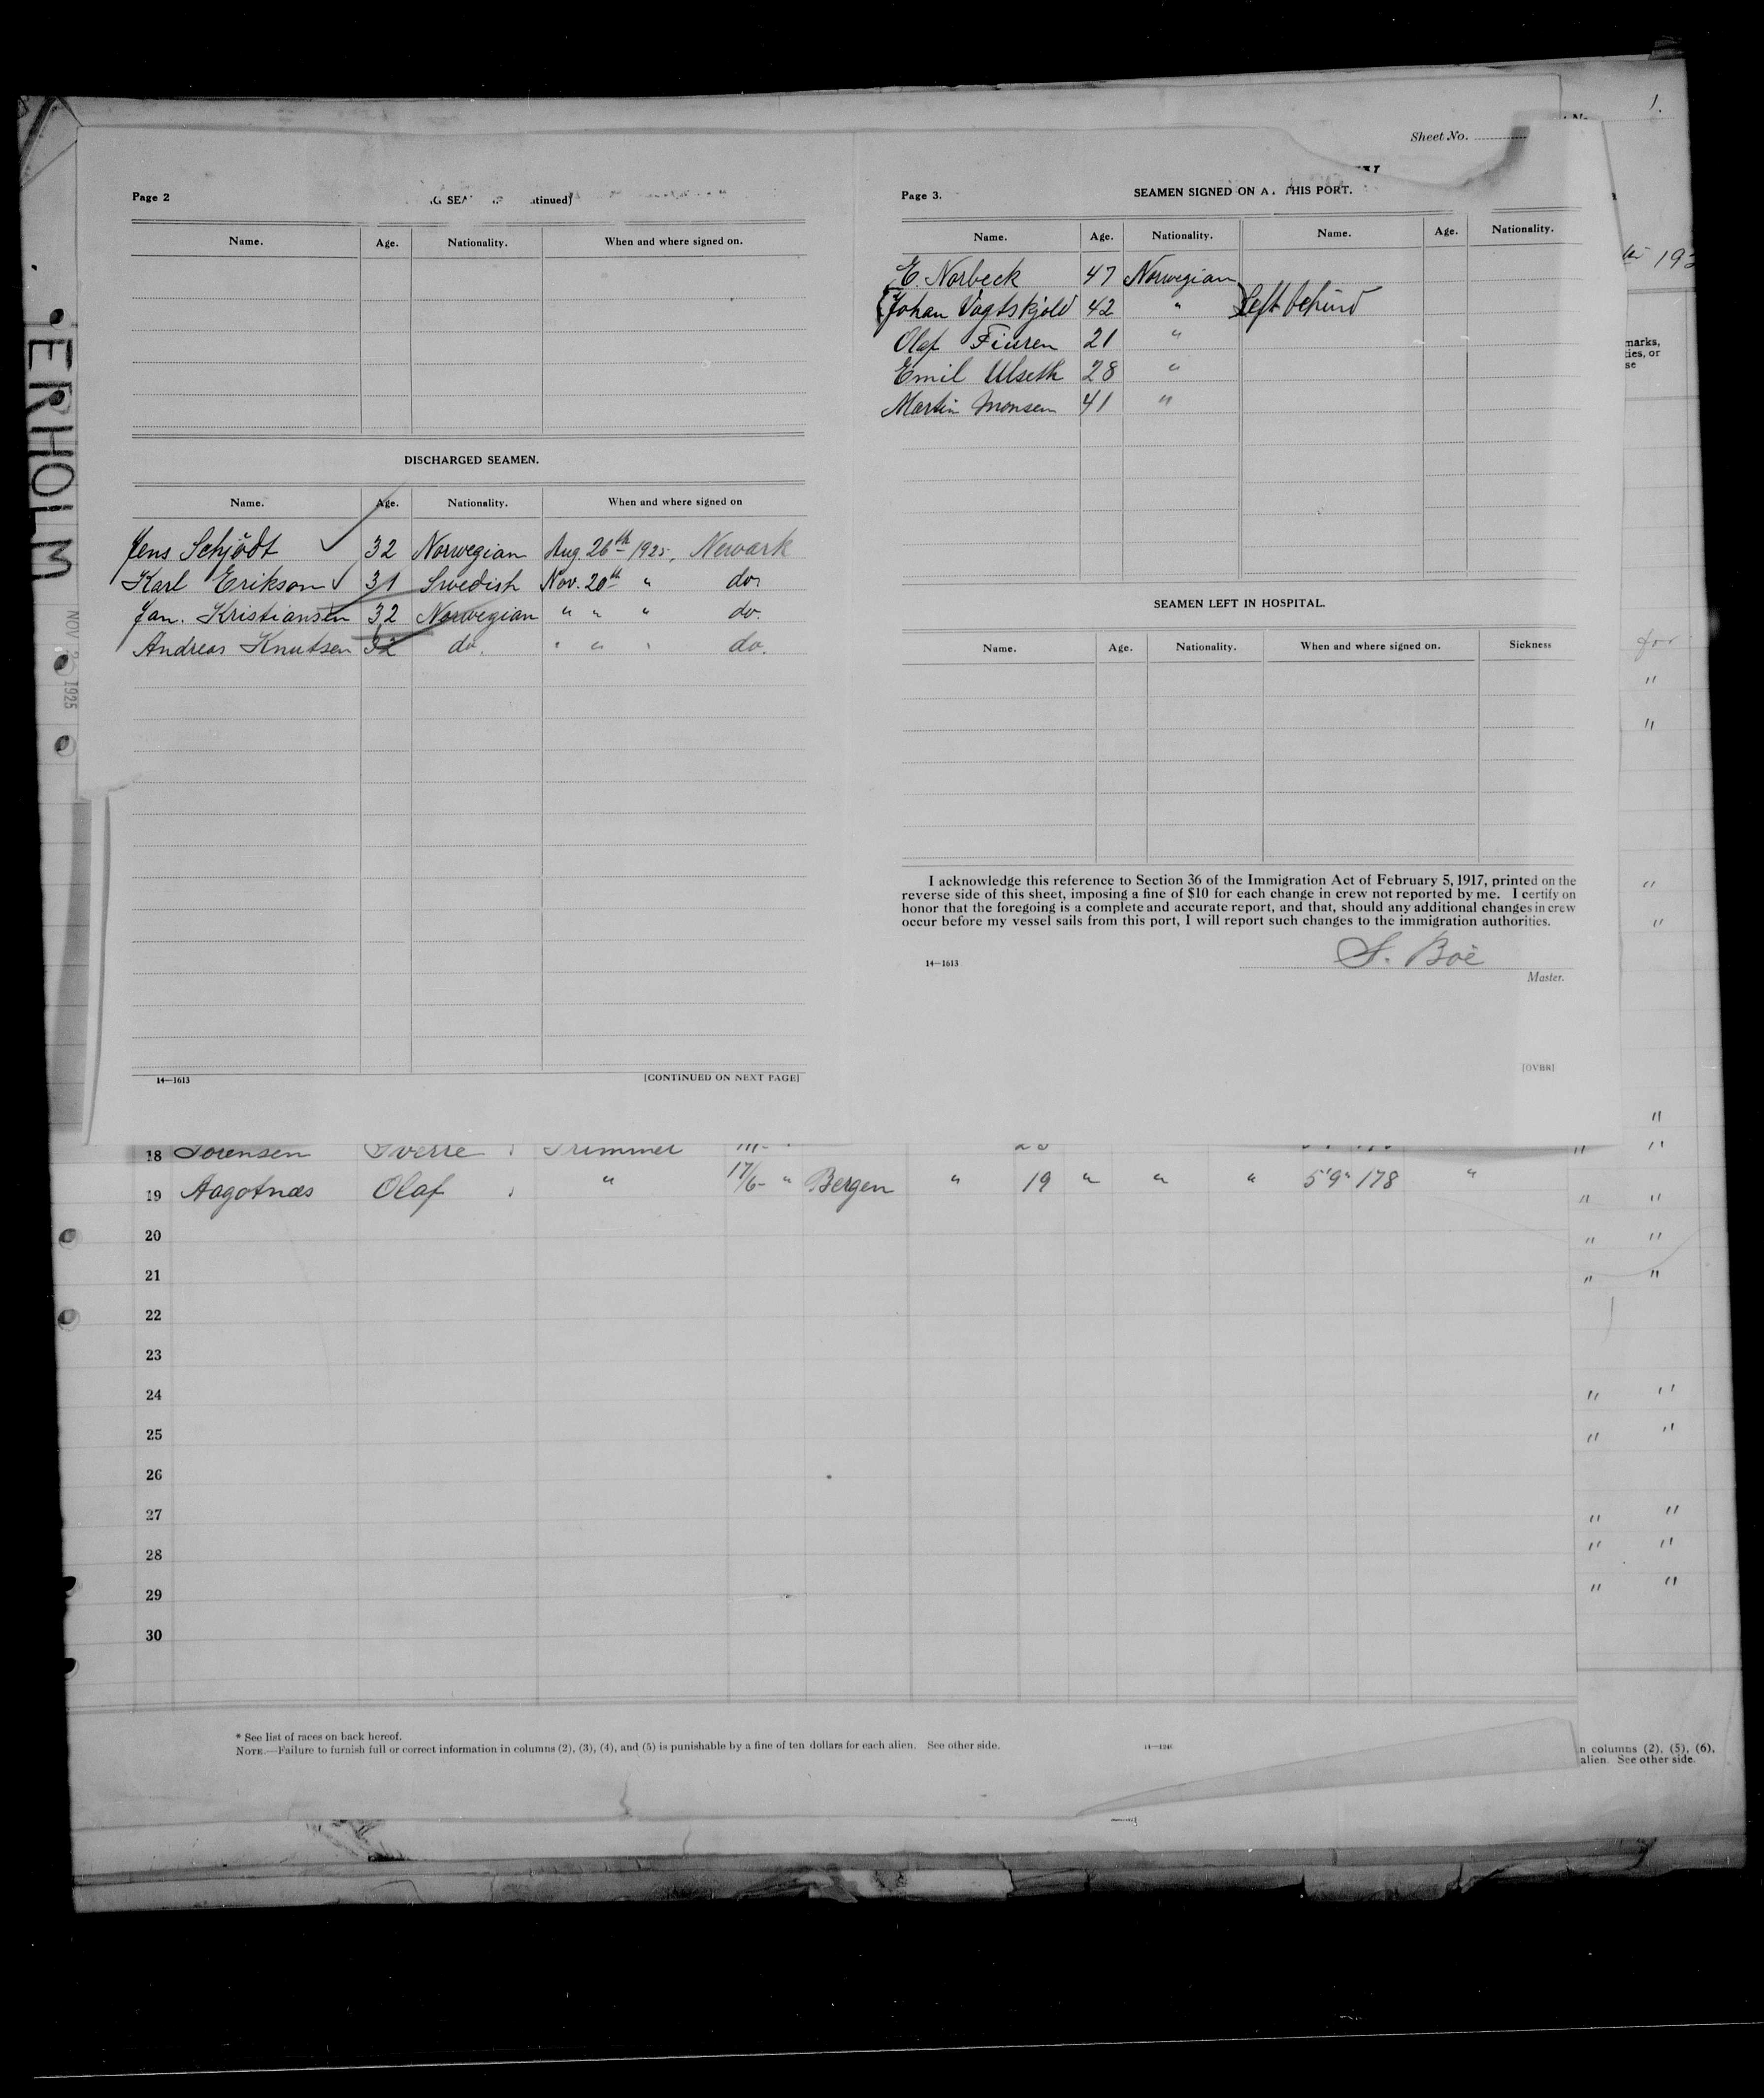 ERHOLM
NOV 1925
Page 2
(continued)
Name. Age. Nationality. When and where signed on.
DISCHARGED SEAMEN.
Name. Age. Nationality. When and where signed on
Jens Schjödt 32 Norwegian Aug. 26th 1925, Newark
Karl Erikson 31 Swedish Nov. 20th " do.
Jan. Kristiansen 32 Norwegian " " " do.
Andreas Knutsen 32 do. " " " do.
14—1613 [CONTINUED ON NEXT PAGE]
Sheet No.
Page 3. SEAMEN SIGNED ON THIS PORT.
Name. Age. Nationality. Name. Age. Nationality.
E. Norbeck 47 Norwegian
Johan Vagtskjold 42 " Left behind
Olaf 21 "
Emil Ulseth 28 "
Martin Monsen 41 "
SEAMEN LEFT IN HOSPITAL.
Name. Age. Nationality. When and where signed on. Sickness
I acknowledge this reference to Section 36 of the Immigration Act of February 5, 1917, printed on the
reverse side of this sheet, imposing a fine of $10 for each change in crew not reported by me. I certify on
honor that the foregoing is a complete and accurate report, and that, should any additional changes in crew
occur before my vessel sails from this port, I will report such changes to the immigration authorities.
S. Boe
14—1613 Master.
[OVER]
18 Sorensen Sverre Trimmer
19 Aagotnæs Olaf " 17/6- " Bergen " 19 " " " 5'9" 178 "
20
21
22
23
24
25
26
27
28
29
30
* See list of races on back hereof.
NOTE.—Failure to furnish full or correct information in columns (2), (3), (4), and (5) is punishable by a fine of ten dollars for each alien. See other side.
1.
193
marks,
ties, or
se
for
n columns (2), (5), (6),
alien. See other side.